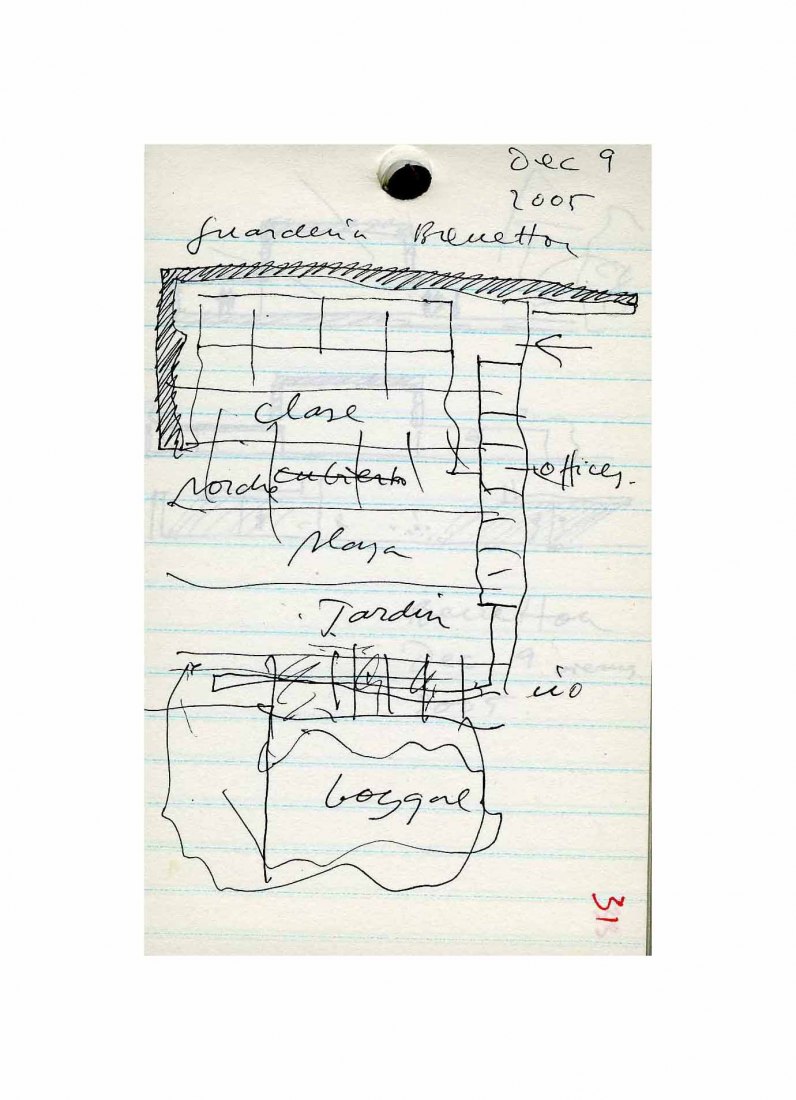 Dec 9
2005
guarderia Benetton
clase
porche cubierto
offices.
Jardin
rio
bosque
31